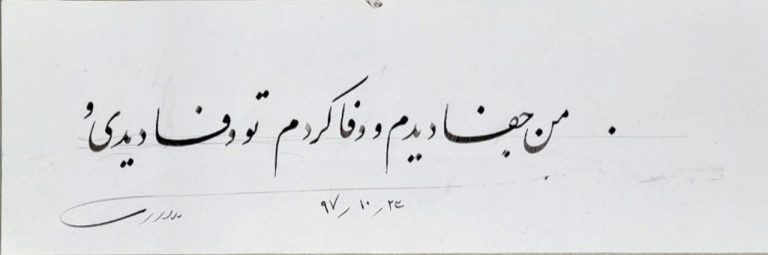 من جفا دیدم و وفا کردم تو وفا دیدی و
۹۷٫۱۰٫۲۴